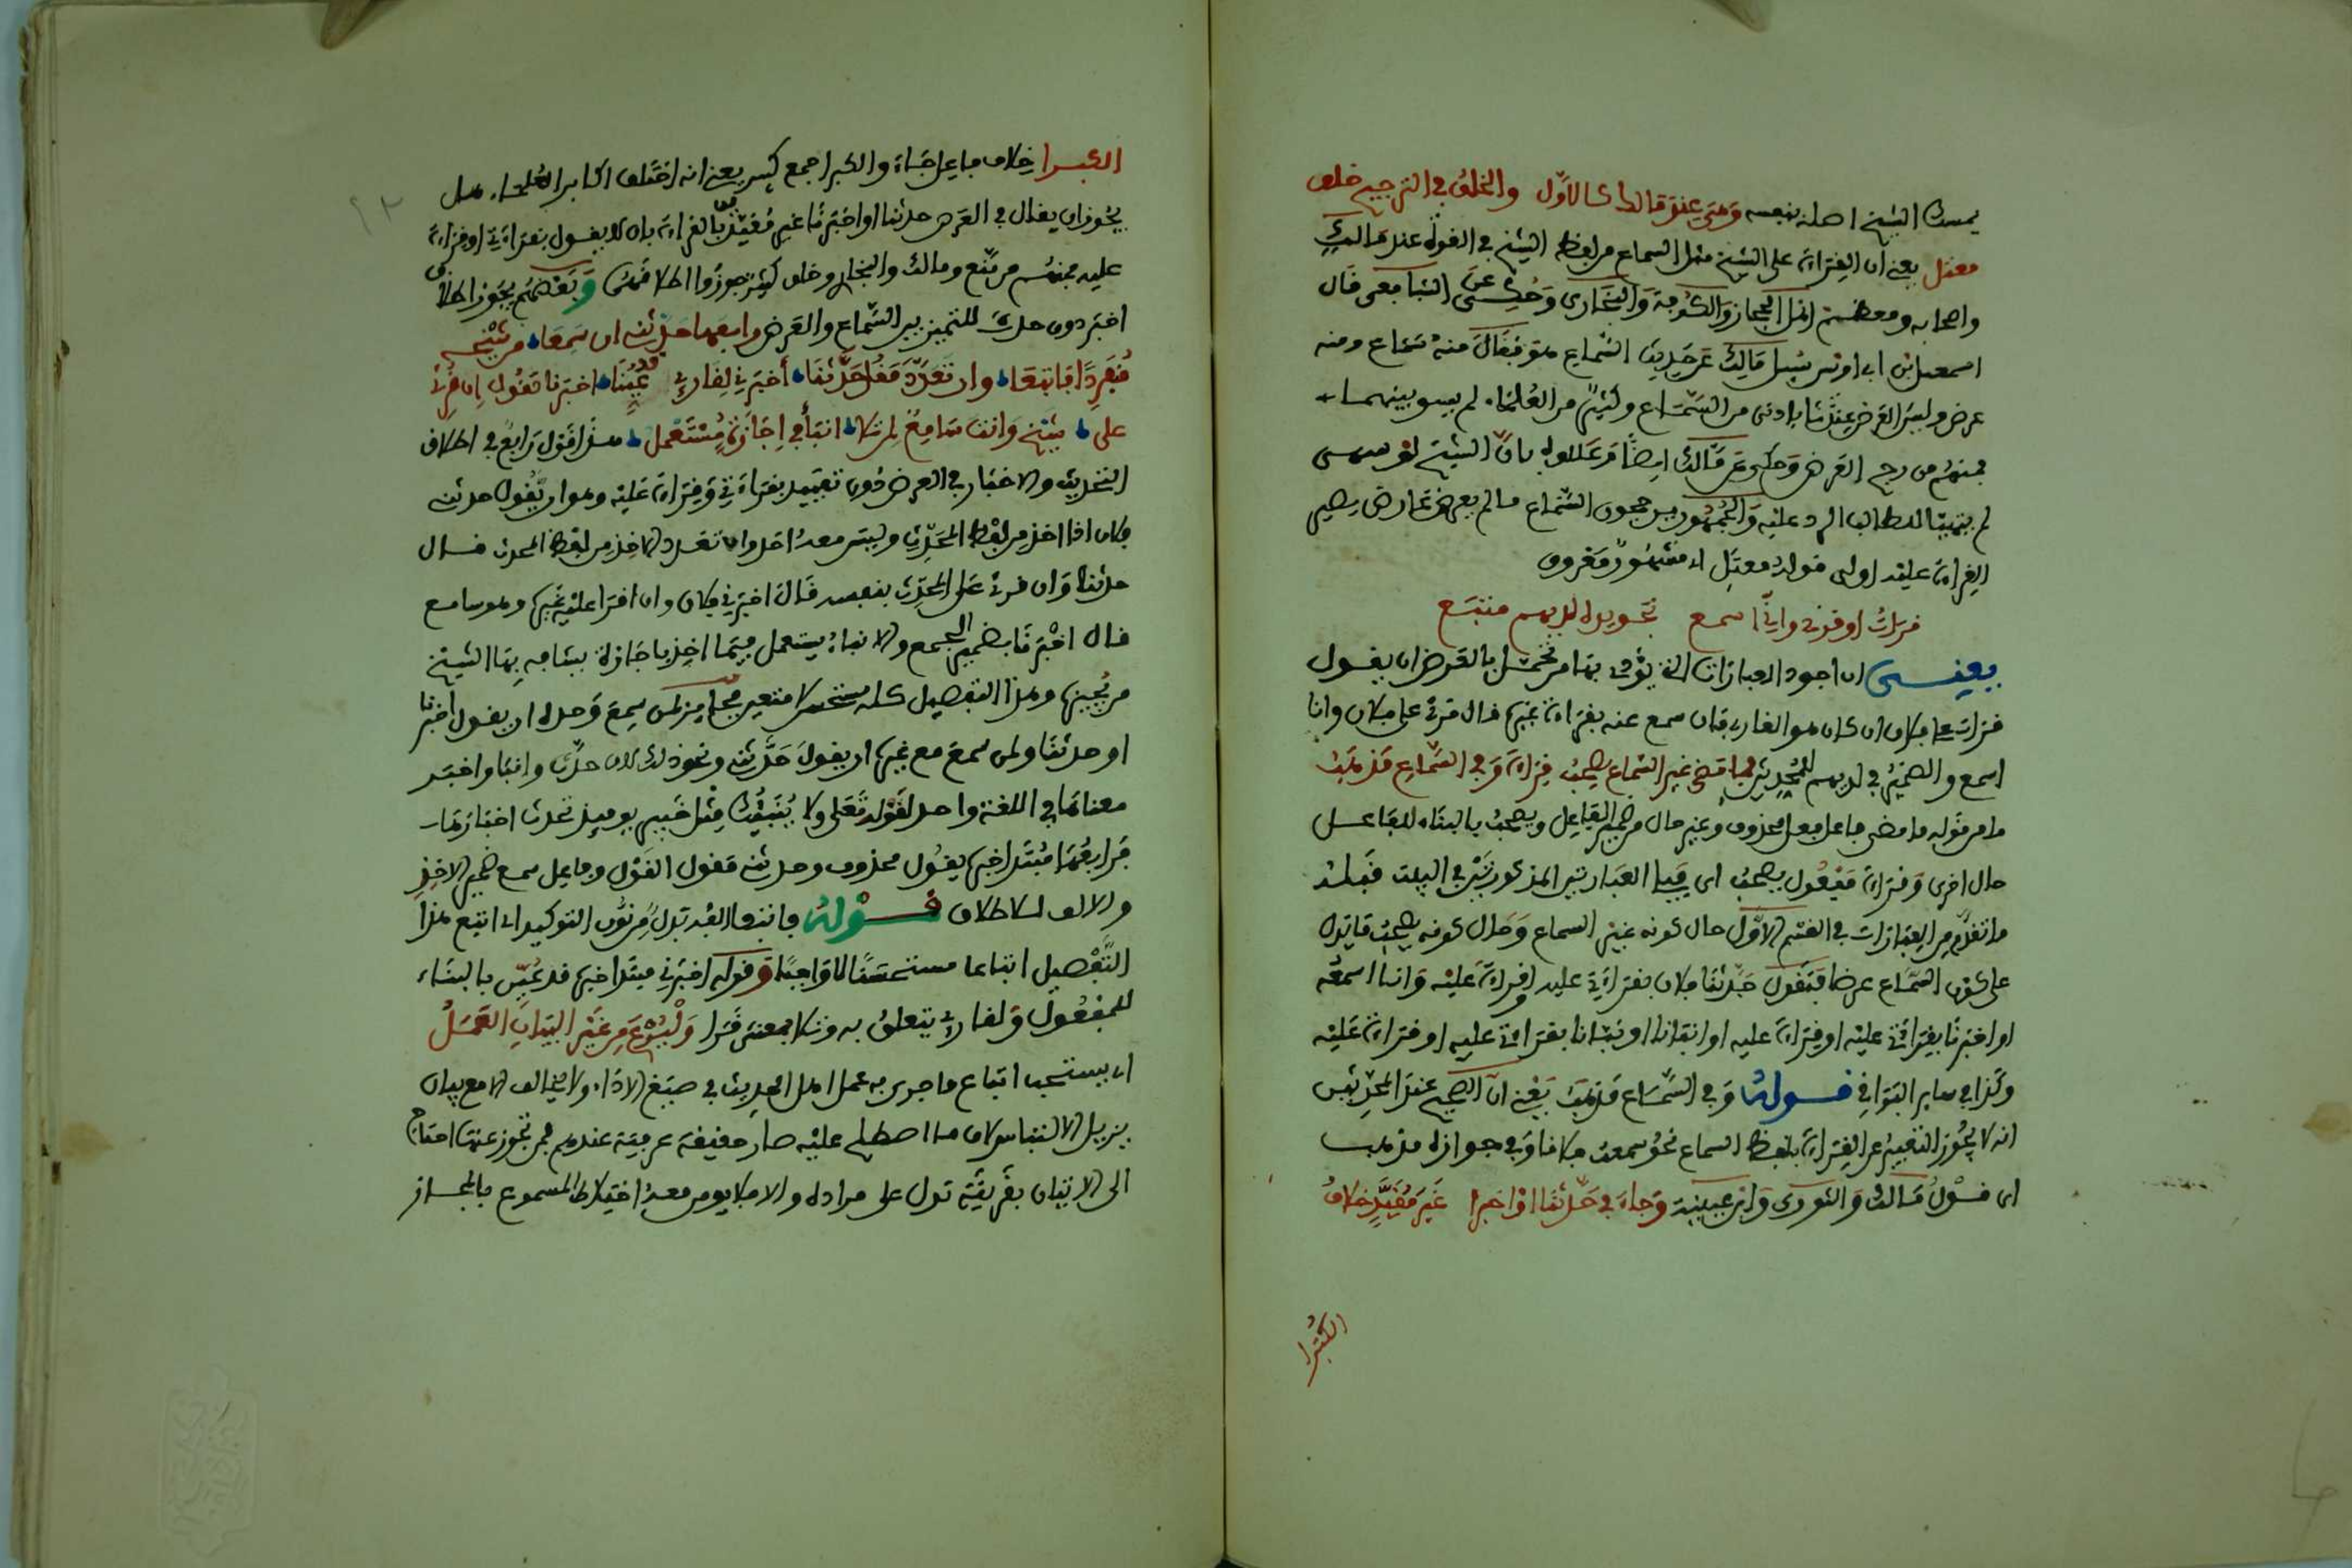 يمسك الشيخ اصله بنفسه وهي عند مالك كالاول والخلف في الترجيح خلف
معتل يعني ان القراءة على الشيخ مثل السماع من لفظ الشيخ في القوة عند مالك
واصحابه ومعظم اهل الحجاز والكوفة والبخاري وحكى عن الشافعي قال
اسمعيل بن ابي اويس سئل مالك عن حديث السماع هو فقال منه سماع ومنه
عرض وليس العرض عندنا بادنى من السماع وكثير من العلماء لم يسو بينهما
فمنهم من رجح العرض وحكي عن مالك ايضا وعللوه بان الشيخ لو سهى
لم يتهيا للطالب الرد عليه والجمهور يرجحون السماع ما لم يعرض عارض يصير
القراءة عليه اولى قوله معتل اي مشهور معروف
قرات او قرئ واني اسمع تجويده لديهم متبع
يعني ان اجود العبارات التي يؤدى بها من تحمل بالعرض ان يقول
قرات على فلان ان كان هو القاري فان سمع عنه بقراءة غيره قال قرئ على فلان وانا
اسمع والضمير في لديهم للمحدثين فما مضى غير السماع يصحب قراءة وفي السماع قد ذهب
ما من قوله ما مضى فاعل فعل محذوف وغير حال من ضمير الفاعل ويصحب بالبناء للفاعل
حال اخرى وقراءة مفعول يصحب اي يلي العبارتين المذكورتين في البيت قبله
ما تقدم من العبارات في القسم الاول حال كونه غير السماع وحال كونه يصحب ما يدل
على كون السماع عرضا فتقول حدثنا فلان بقراءتي عليه او قراءة عليه وانا اسمعه
او اخبرنا بقراءتي عليه او قراءة عليه او انبانا او نبانا بقراءتي عليه او قراءة عليه
وكذا في ساير البواقي قوله وفي السماع قد ذهب يعني ان الصحيح عند المحدثين
انه لا يجوز التعبير عن القراءة بلفظ السماع نحو سمعت فلانا وفي جوازه مذهب
اي قول مالك والثوري وابن عيينة وجاء في حدثنا او اخبرا غير مقيد خلاف
الكبرا
الكبرا خلاف فاعل جاء والكبرا جمع كبير يعني انه اختلف اكابر العلماء هل
يجوز ان يقال في العرض حدثنا او اخبرنا غير مقيدين بالقراءة بان لا يقول بقراءتي او قراءة
عليه فمنهم من منع ومالك والبخاري وخلق كثير جوزوا اطلاقهما وبعضهم يجوز اطلاق
اخبر دون حدث للتمييز بين السماع والعرض وابعهما حدثني ان سمعا من شيخه
مفردا فاتبعا وان تعدد فقل حدثنا اخبرني لقاري قد عينا اخبرنا تقول ان قرئ
على شيخ وانت سامع لمن تلا انبأ في اجازة مستعمل هذا قول رابع في اطلاق
التحديث والاخبار في العرض دون تقييد بقراءتي وقراءة عليه وهو ان يقول حدثني
فلان اذا اخذ من لفظ المحدث وليس معه احد وان تعدد الاخذ من لفظ المحدث قال
حدثنا وان قرئ على المحدث بنفسه قال اخبرني فلان وان اقرا عليه غيره وهو سامع
قال اخبرنا بضمير الجمع والانباء يستعمل فيما اخذ باجازة يشافه بها الشيخ
من يجيزه وهذا التفصيل كله مستحسن لا متعين فجايز لمن سمع وحده ان يقول اخبرنا
او حدثنا ولمن سمع مع غيره ان يقول حدثني ونحو ذلك لان حدث وانبا واخبر
معناها في اللغة واحد لقوله تعلى ولا ينبئك مثل خبير يوميذ تحدث اخبارها
مبتدا خبره يقول محذوف وحدثني مقول القول وفاعل سمع ضمير الاخذ
والالف للاطلاق قوله فاتبعا الفه بدل من نون التوكيد اي اتبع هذا
التفصيل اتباعا مستحسنا لا واجبا وقوله اخبرني مبتدا خبره قد عين بالبناء
للمفعول ولقاري يتعلق به وتلا بمعنى قرا وليتبع من غير البيان العمل
اي يستحب اتباع ما جرى به عمل اهل الحديث في صيغ الاداء ولا يخالف الا مع بيان
يزيل الالتباس لان ما اصطلح عليه صار حقيقة عرفية عندهم فمن تجوز عنها احتاج
الى الاتيان بقرينة تدل على مراده والا فلا يومن معه اختلاط المسموع بالمجاز